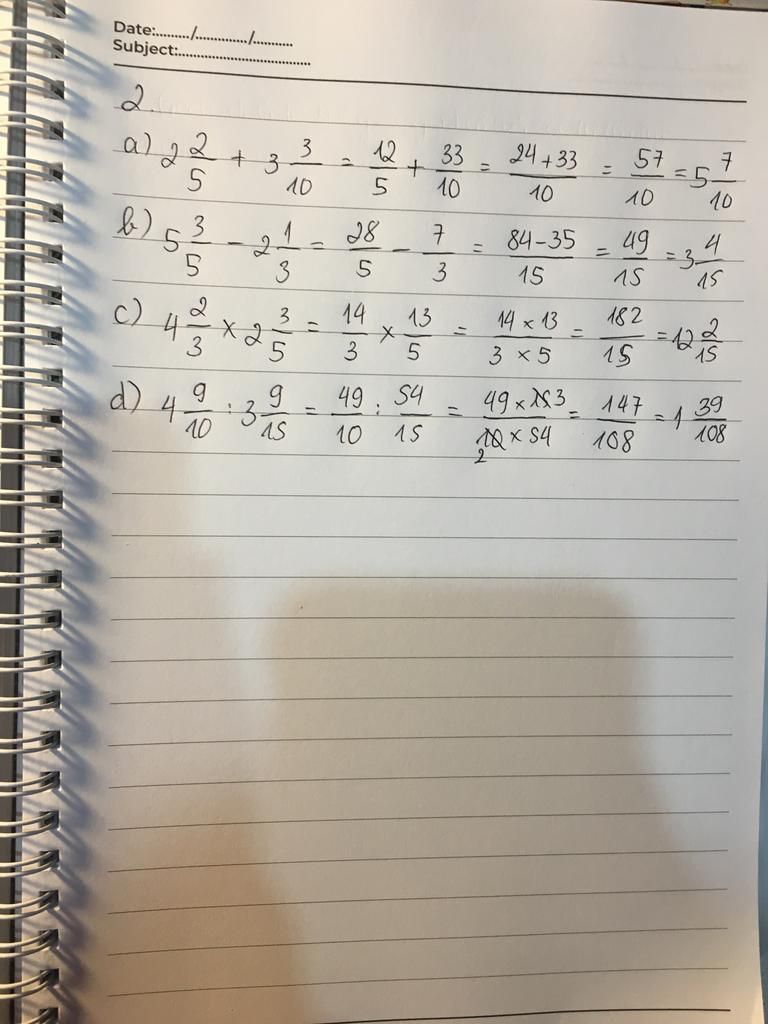 Date:........./............./..........
Subject:....................................
2.
a) 2 2/5 + 3 3/10 = 12/5 + 33/10 = 24+33/10 = 57/10 = 5 7/10
b) 5 3/5 - 2 1/3 = 28/5 - 7/3 = 84-35/15 = 49/15 = 3 4/15
c) 4 2/3 × 2 3/5 = 14/3 × 13/5 = 14 × 13/3 × 5 = 182/15 = 12 2/15
d) 4 9/10 : 3 9/15 = 49/10 : 54/15 = 49 × 15 3/10 2 × 54 = 147/108 = 1 39/108